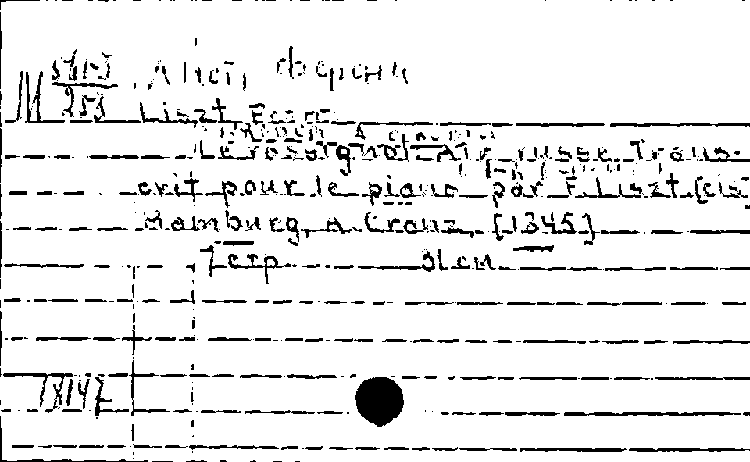 M 561-3/253 Лист, Ференц
Liszt, Ferenc
Le rossignol. Air russe. Trans-
crit pour le piano par F. Liszt. [cis]
Hamburg, A. Cranz, [1845]
7 стр 31 см
18147